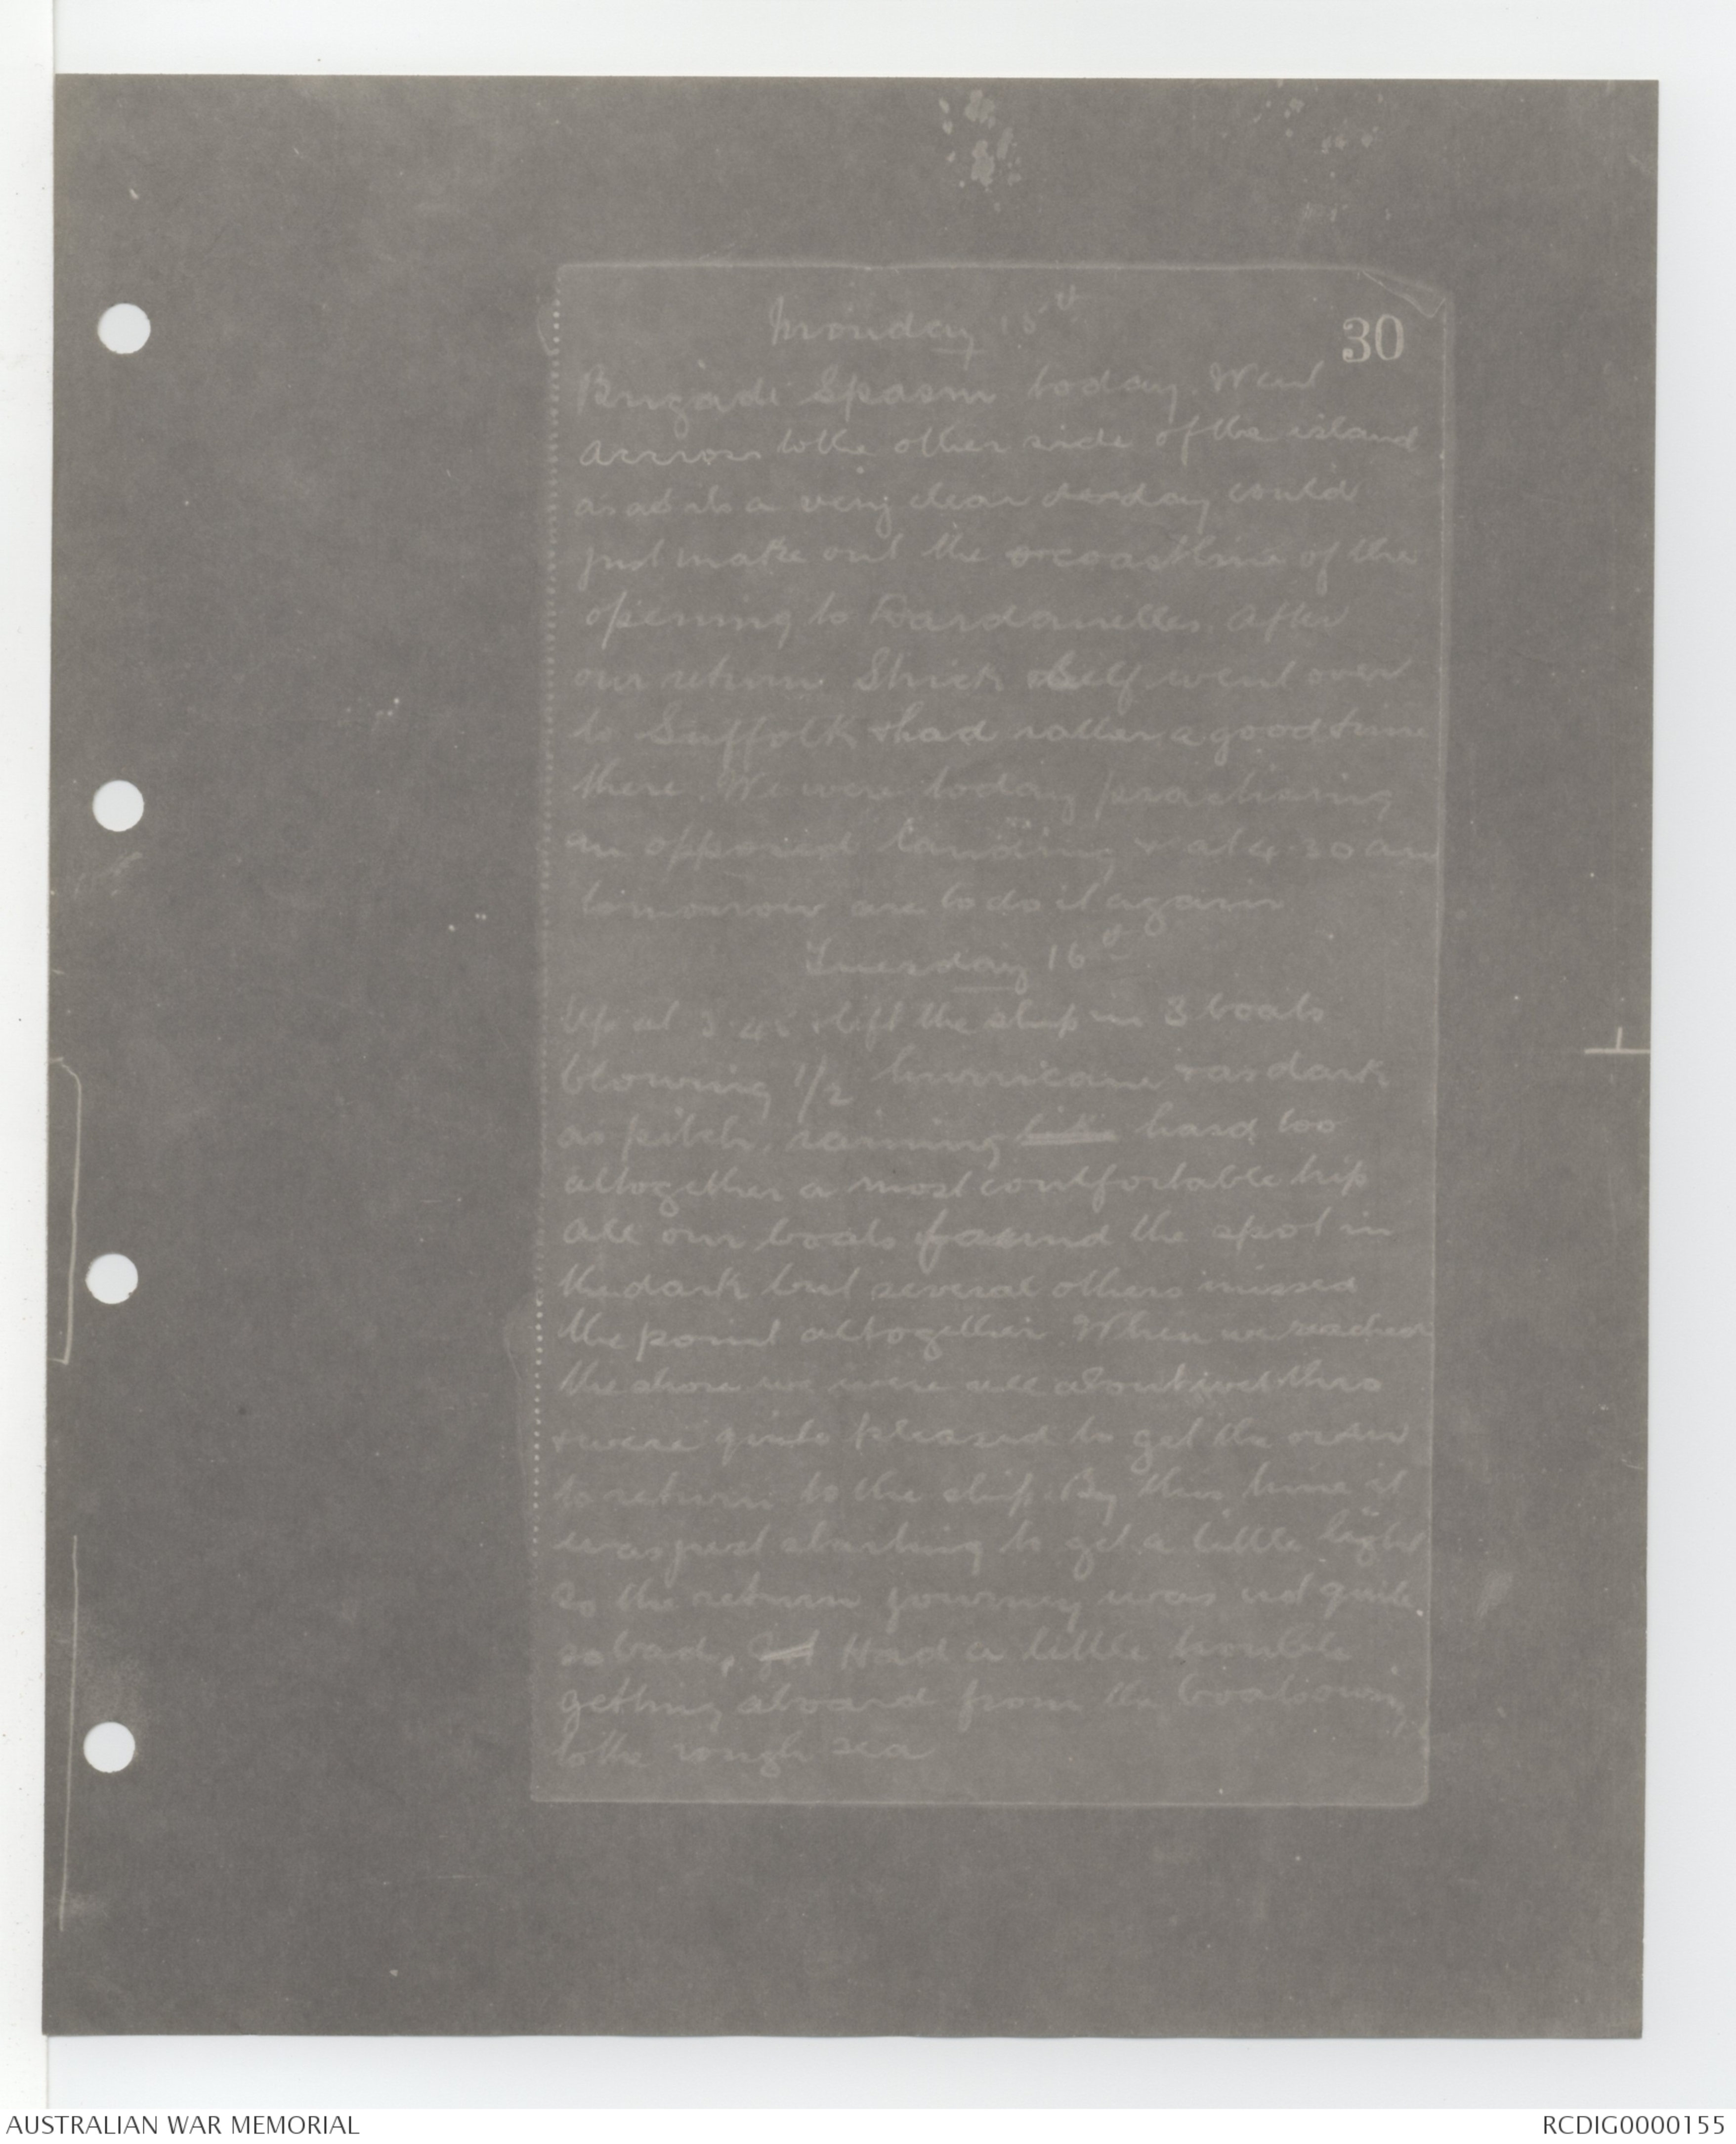 Monday 15th
30
Brigade Spasm today. Went
across to the other side of the island
as it is a very clear day could
just make out the coastline of the
opening to Dardanelles. After
our return Strick & self went over
to Suffolk & had rather a good time
there. We were today practising
an opposed landing & at 4.30 am
tomorrow are to do it again
Tuesday 16th
Up at 3.45 & left the ship in 3 boats
blowing 1/2 hurricane & as dark
as pitch, raining hard too
altogether a most comfortable trip
All our boats found the spot in
the dark but several others missed
the point altogether. When we reached
the shore we were all about wet thro
& were quite pleased to get the order
to return to the ship. By this time it
was just starting to get a little light
so the return journey was not quite
so bad, Had a little trouble
getting aboard from the boats owing
to the rough sea
AUSTRALIAN WAR MEMORIAL
RCDIG0000155